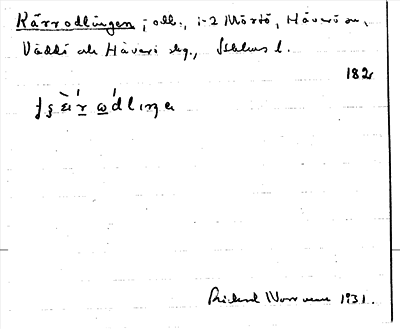 Kärrodlingen, odl., i-2 Mörtö, Häverö sn,
Väddö och Häverö skg., Sthlms l.
182
Richard Norrman 1931.